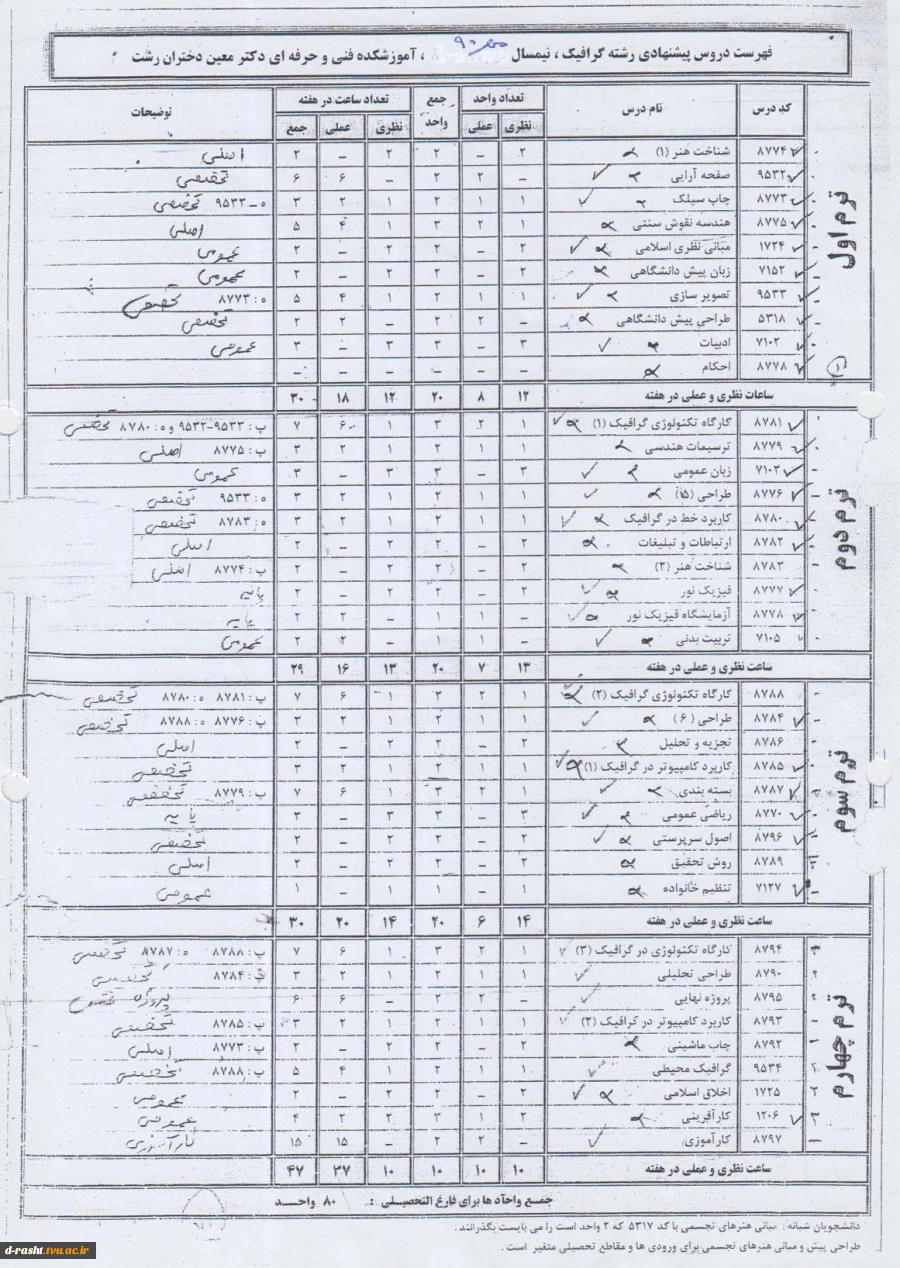 فهرست دروس پیشنهادی رشته گرافیک ، نیمسال ، آموزشکده فنی و حرفه ای دکتر معین دختران رشت
کد درس نام درس تعداد واحد جمع واحد تعداد ساعت در هفته توضیحات
نظری عملی نظری عملی جمع
ترم اول
۸۷۷۴ شناخت هنر (۱) ۲ – ۲ ۲ – ۲ اصلی
۹۵۳۲ صفحه آرایی – ۲ ۲ – ۶ ۶ تخصصی
۸۷۷۳ چاپ سیلک ۱ ۱ ۲ ۱ ۲ ۳ ه – ۹۵۳۳ تخصصی
۸۷۷۵ هندسه نقوش سنتی ۱ ۲ ۳ ۱ ۴ ۵ اصلی
۱۷۲۴ مبانی نظری اسلامی ۲ – ۲ ۲ – ۲ عمومی
۷۱۵۲ زبان پیش دانشگاهی ۲ – ۲ ۲ – ۲ عمومی
۹۵۳۳ تصویر سازی ۱ ۱ ۲ ۱ ۴ ۵ ه : ۸۷۷۳ تخصصی
۵۳۱۸ طراحی پیش دانشگاهی – ۲ ۲ – ۲ ۲ تخصصی
۷۱۰۲ ادبیات ۳ – ۳ ۳ – ۳ عمومی
۸۷۷۸ احکام – – – – – –
ساعات نظری و عملی در هفته ۱۲ ۸ ۲۰ ۱۲ ۱۸ ۳۰
ترم دوم
۸۷۸۱ کارگاه تکنولوژی گرافیک (۱) ۱ ۲ ۳ ۱ ۶ ۷ پ : ۹۵۳۳-۹۵۳۲ و ه : ۸۷۸۰ تخصصی
۸۷۷۹ ترسیمات هندسی ۱ ۱ ۲ ۱ ۲ ۳ پ : ۸۷۷۵ اصلی
۷۱۰۳ زبان عمومی ۳ – ۳ ۳ – ۳ عمومی
۸۷۷۶ طراحی (۵) ۱ ۱ ۲ ۱ ۲ ۳ ه : ۹۵۳۳ تخصصی
۸۷۸۰ کاربرد خط در گرافیک ۱ ۱ ۲ ۱ ۲ ۳ ه : ۸۷۸۳ تخصصی
۸۷۸۲ ارتباطات و تبلیغات ۲ – ۲ ۲ – ۲ اصلی
۸۷۸۳ شناخت هنر (۲) ۲ – ۲ ۲ – ۲ پ : ۸۷۷۴ اصلی
۸۷۷۷ فیزیک نور ۲ – ۲ ۲ – ۲ پایه
۸۷۷۸ آزمایشگاه فیزیک نور – ۱ ۱ – ۲ ۲ پایه
۷۱۰۵ تربیت بدنی – ۱ ۱ – ۲ ۲ عمومی
ساعت نظری و عملی در هفته ۱۳ ۷ ۲۰ ۱۳ ۱۶ ۲۹
ترم سوم
۸۷۸۸ کارگاه تکنولوژی گرافیک (۲) ۱ ۲ ۳ ۱ ۶ ۷ پ : ۸۷۸۱ ه : ۸۷۸۰ تخصصی
۸۷۸۴ طراحی (۶) ۱ ۱ ۲ ۱ ۲ ۳ پ : ۸۷۷۶ ه : ۸۷۸۸ تخصصی
۸۷۸۶ تجزیه و تحلیل ۲ – ۲ ۲ – ۲ اصلی
۸۷۸۵ کاربرد کامپیوتر در گرافیک (۱) ۱ ۱ ۲ ۱ ۲ ۳ تخصصی
۸۷۸۷ بسته بندی ۱ ۲ ۳ ۱ ۶ ۷ پ : ۸۷۷۹ تخصصی
۸۷۷۰ ریاضی عمومی ۳ – ۳ ۳ – ۳ پایه
۸۷۹۶ اصول سرپرستی ۲ – ۲ ۲ – ۲ تخصصی
۸۷۸۹ روش تحقیق ۲ – ۲ ۲ – ۲ اصلی
۷۱۲۷ تنظیم خانواده ۱ – ۱ ۱ – ۱ عمومی
ساعت نظری و عملی در هفته ۱۴ ۶ ۲۰ ۱۴ ۲۰ ۳۰
ترم چهارم
۸۷۹۴ کارگاه تکنولوژی در گرافیک (۳) ۱ ۲ ۳ ۱ ۶ ۷ پ : ۸۷۸۸ ه : ۸۷۸۷ تخصصی
۸۷۹۰ طراحی تحلیلی ۱ ۱ ۲ ۱ ۲ ۳ پ : ۸۷۸۴ تخصصی
۸۷۹۵ پروژه نهایی – ۲ ۲ – ۶ ۶ پروژه
۸۷۹۳ کاربرد کامپیوتر در گرافیک (۲) ۱ ۱ ۲ ۱ ۲ ۳ پ : ۸۷۸۵ تخصصی
۸۷۹۲ چاپ ماشینی ۲ – ۲ ۲ – ۲ پ : ۸۷۷۳ اصلی
۹۵۳۴ گرافیک محیطی ۱ ۱ ۲ ۱ ۴ ۵ پ : ۸۷۸۸ تخصصی
۱۷۲۵ اخلاق اسلامی ۲ – ۲ ۲ – ۲ عمومی
۱۲۰۶ کارآفرینی ۲ ۱ ۳ ۲ ۲ ۴ عمومی
۸۷۹۷ کارآموزی – ۲ ۲ – ۱۵ ۱۵ کارآموزی
ساعت نظری و عملی در هفته ۱۰ ۱۰ ۱۰ ۱۰ ۳۷ ۴۷
جمع واحد ها برای فارغ التحصیلی : ۸۰ واحد
دانشجویان شبانه : مبانی هنرهای تجسمی با کد ۵۳۱۷ که ۲ واحد است را می بایست بگذرانند.
طراحی پیش و مبانی هنرهای تجسمی برای ورودی ها و مقاطع تحصیلی متغیر است .
d-rasht.tvu.ac.ir